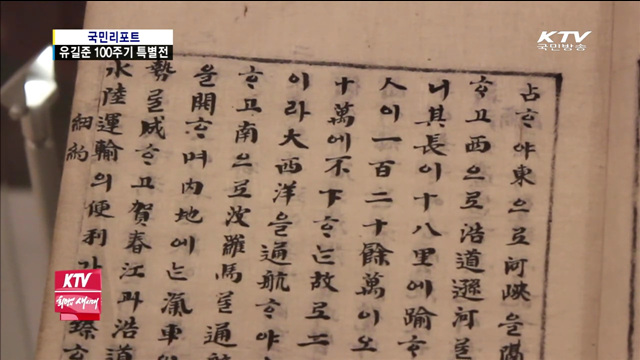 국민리포트
유길준 100주기 특별전
KTV
국민방송
占ᄒᆞ야東으로河峽을隔
ᄒᆞ고西으로浩道遜河를
니其長이十八里에踰ᄒᆞ
人이一百二十餘萬이오
十萬에不下ᄒᆞᄂᆞᆫ故로二
이라大西洋을通航ᄒᆞ야
ᄒᆞ고南으로波羅馬를通航
을開ᄒᆞ며內地에ᄂᆞᆫ滊車
勢를威ᄒᆞ고賀春江과浩道
水陸運輸의便利가
綱約
KTV